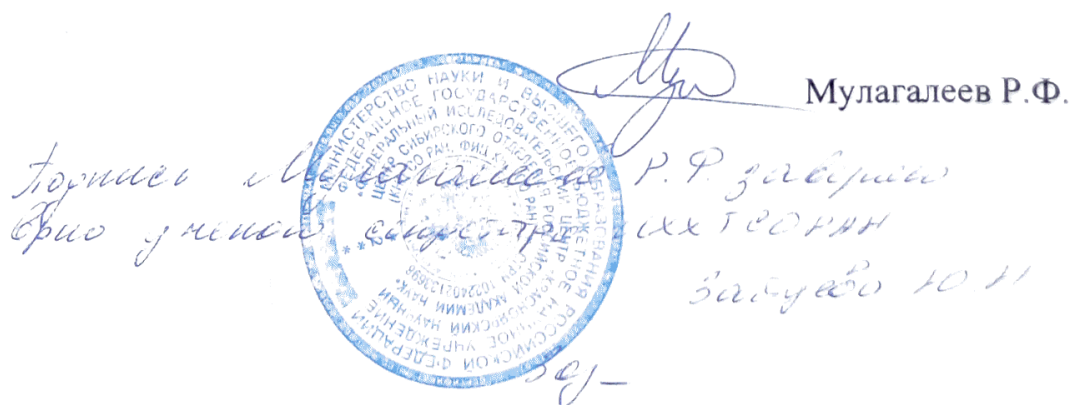 Мулагалеев Р.Ф.
Подпись Мулагалеева Р.Ф. заверяю
Врио ученого секретаря ИХХТ СО РАН
Зайцева Ю Н
МИНИСТЕРСТВО НАУКИ И ВЫСШЕГО ОБРАЗОВАНИЯ РОССИЙСКОЙ ФЕДЕРАЦИИ
ФЕДЕРАЛЬНОЕ ГОСУДАРСТВЕННОЕ БЮДЖЕТНОЕ НАУЧНОЕ УЧРЕЖДЕНИЕ
«ФЕДЕРАЛЬНЫЙ ИССЛЕДОВАТЕЛЬСКИЙ ЦЕНТР «КРАСНОЯРСКИЙ НАУЧНЫЙ
ЦЕНТР СИБИРСКОГО ОТДЕЛЕНИЯ РОССИЙСКОЙ АКАДЕМИИ НАУК»